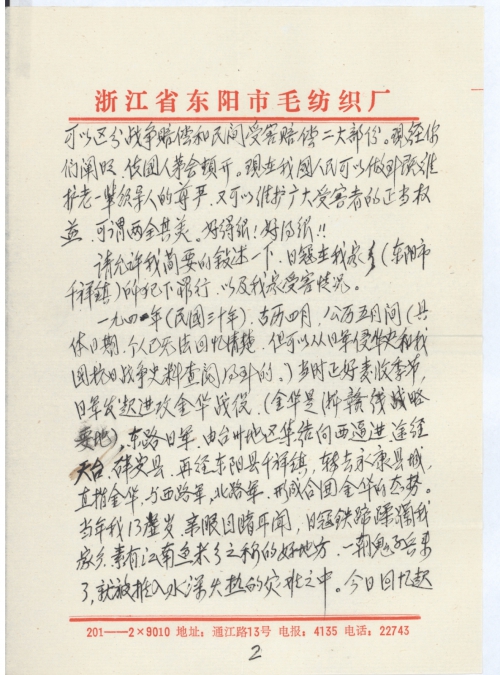 浙江省东阳市毛纺织厂
可以区分战争赔偿和民间受害赔偿二大部份。现经你
们阐明,使国人茅舍顿开。现在我国人民可以做到既维
护老一辈领导人的尊严,又可以维护广大受害者的正当权
益,可谓两全其美。好得狠!好得狠!!
请允许我简要的叙述一下,日寇在我家乡(东阳市
千祥镇)所犯下罪行,以及我家受害情况。
一九四一年(民国三十年),古历四月,公历五月间(具
体日期,个人已无法回忆清楚,但可以从日军侵华史和我
国抗日战争史料查阅得到的。)当时正好麦收季节,
日军发起进攻金华战役,(金华是浙赣线战略
要地),东路日军,由台州地区集结向西逼进,途经
天台、磐安县,再经东阳县千祥镇,转去永康县城,
直指金华,与西路军,北路军,形成合围金华的态势。
当年我13岁,亲眼目睹耳闻,日寇铁蹄蹂躏我
家乡,素有江南鱼米之乡之称的好地方,一朝鬼子兵来
了,就被推入水深火热的灾难之中。今日回忆起
201——2×9010 地址:通江路13号 电报:4135 电话:22743
2